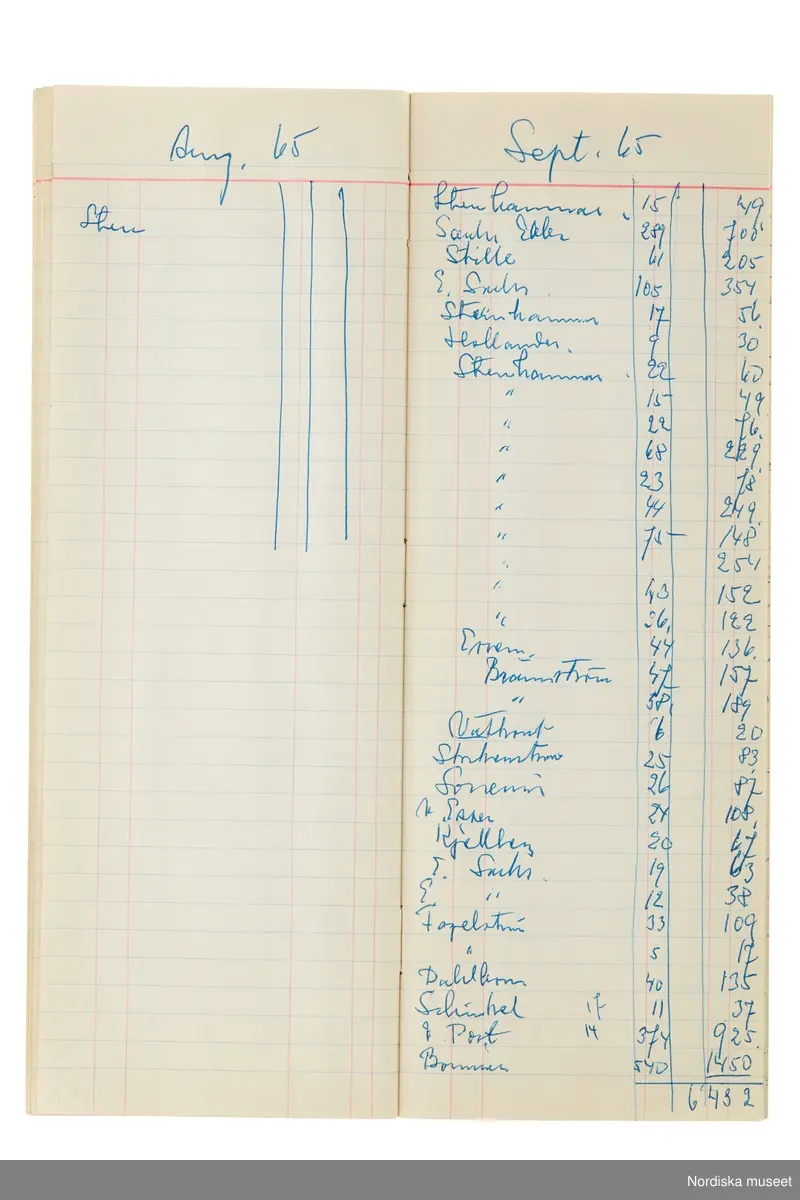 Aug. 65
Sten
Sept. 65
Stenhammar 15 49
Sachs Ebba 289 700
Stille 61 205
E. Sachs 105 354
Stenhammar 17 56
Hollander 9 30
Stenhammar 22 60
" 15 49
" 22 76
" 68 229
" 23 78
" 44 249
" 75 148
" 254
" 43 152
" 36 122
Essen 44 136
Brännström 47 157
" 58 189
6 20
25 83
26 87
v Essen 24 108
Kjellberg 20 67
E. Sachs 19 63
E. " 12 38
Fogelström 33 109
" 5 17
40 135
Schinkel 17 11 37
Post 14 374 925
Bonnier 540 1450
6432
Nordiska museet